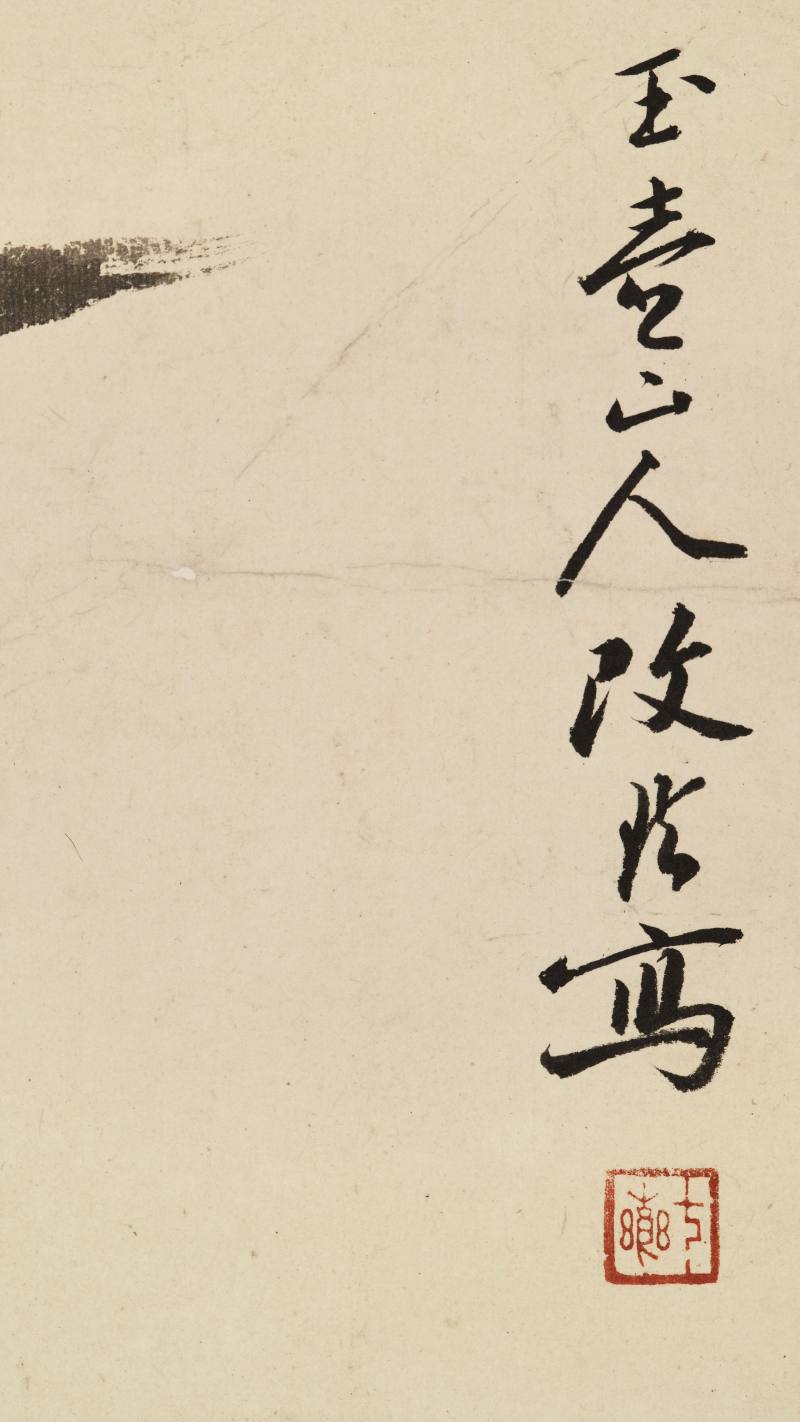 玉壺山人改琦寫
七薌